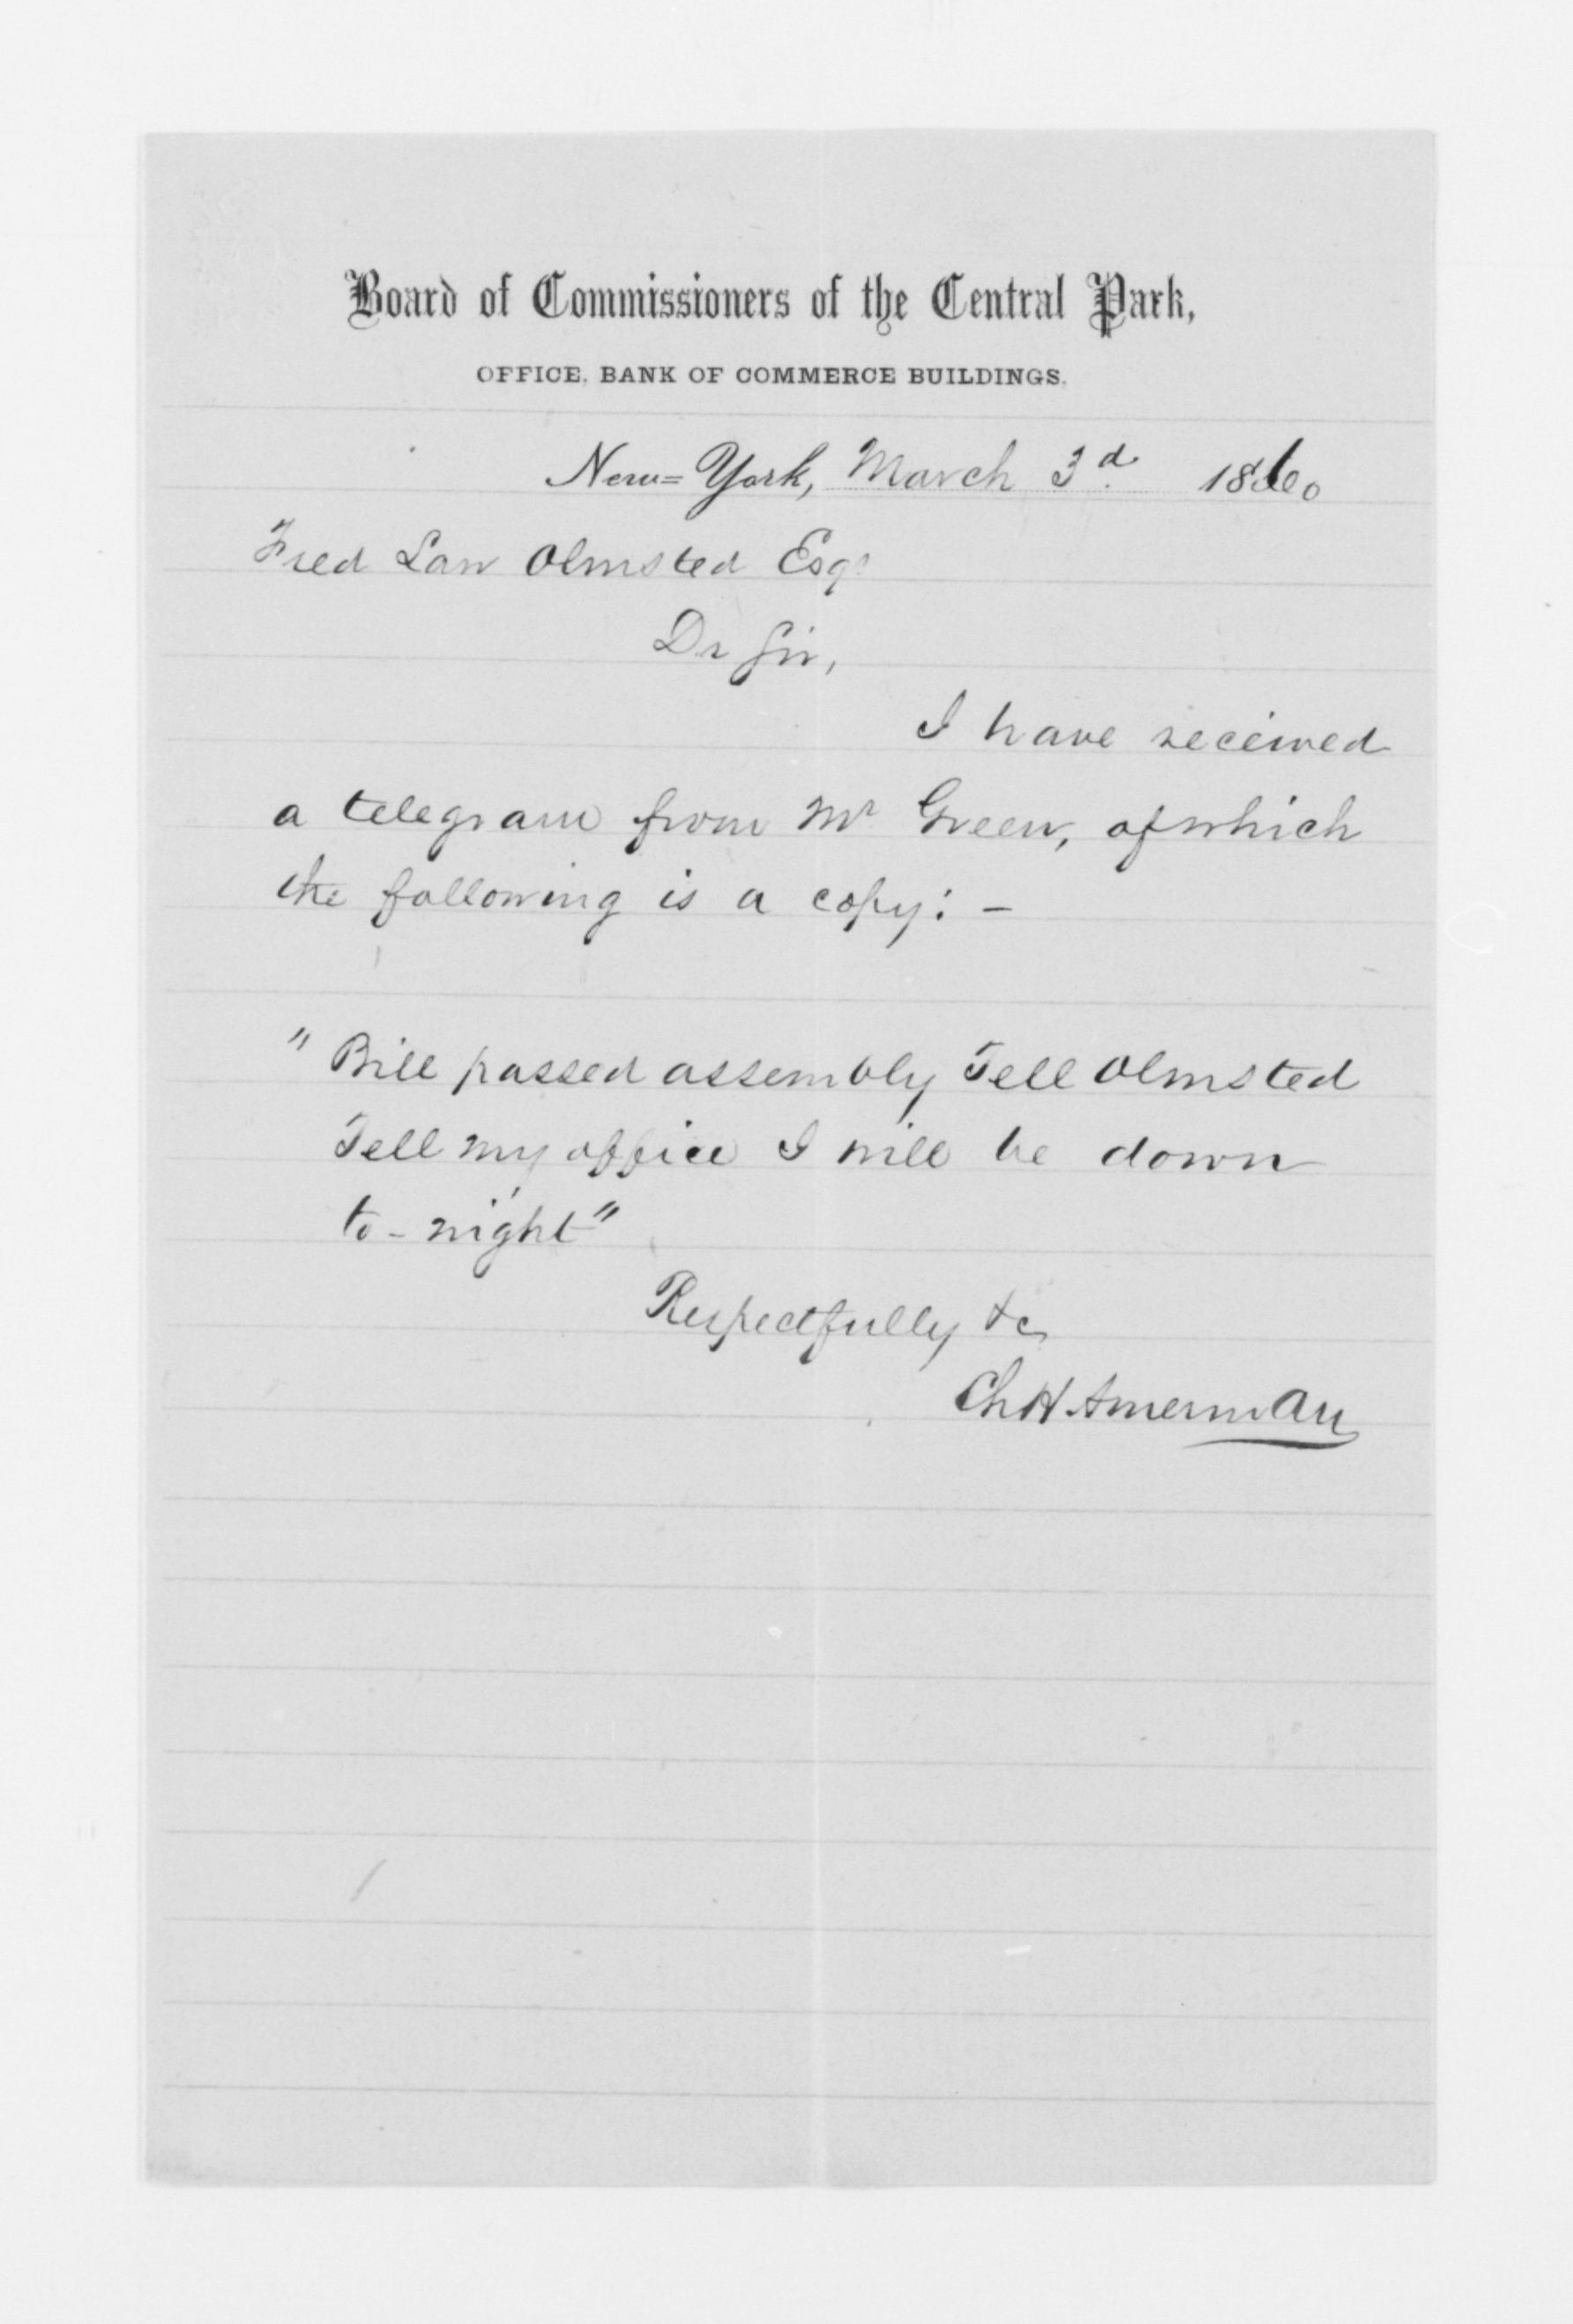 Board of Commissioners of the Central Park,
OFFICE, BANK OF COMMERCE BUILDINGS.
New=York, March 3d. 1860
Fred Law Olmsted Esqr
Dr Sir,
I have received
a telegram from Mr Green, of which
the following is a copy: —
"Bill passed assembly Tell Olmsted
Tell my office I will be down
to-night"
Respectfully &c
Ch H Amerman